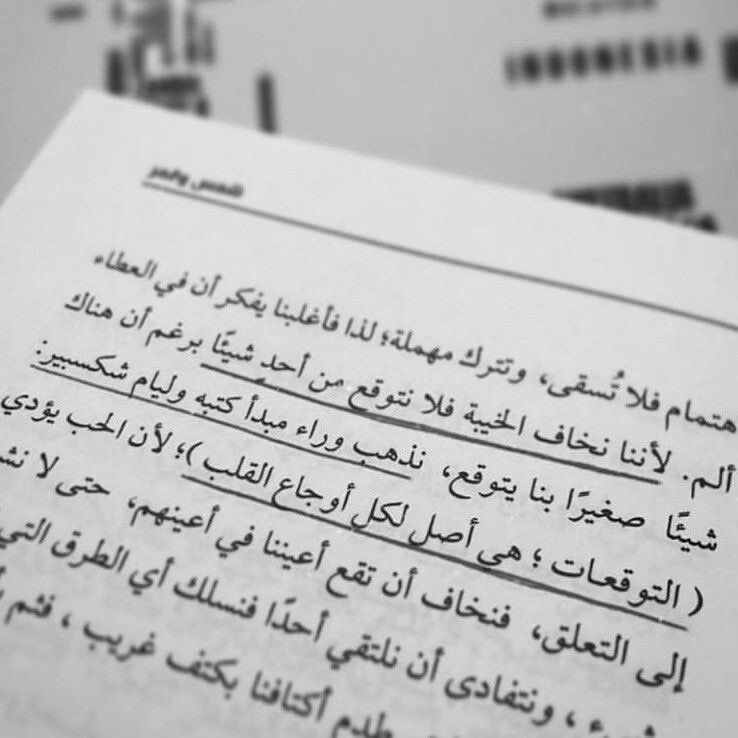 INDONESIA
شمس وقمر
هتمام فلا تُسقى، وتترك مهملة؛ لذا فأغلبنا يفكر أن في العطاء
ألم. لأننا نخاف الخيبة فلا نتوقع من أحدٍ شيئًا برغم أن هناك
شيئًا صغيرًا بنا يتوقع، نذهب وراء مبدأ كتبه وليام شكسبير:
( التوقعات ؛ هي أصل لكل أوجاع القلب )؛ لأن الحب يؤدي
إلى التعلق، فنخاف أن تقع أعيننا في أعينهم، حتى لا نش
، ونتفادى أن نلتقي أحدًا فنسلك أي الطرق التي
أكتافنا بكتف غريب ، فثم